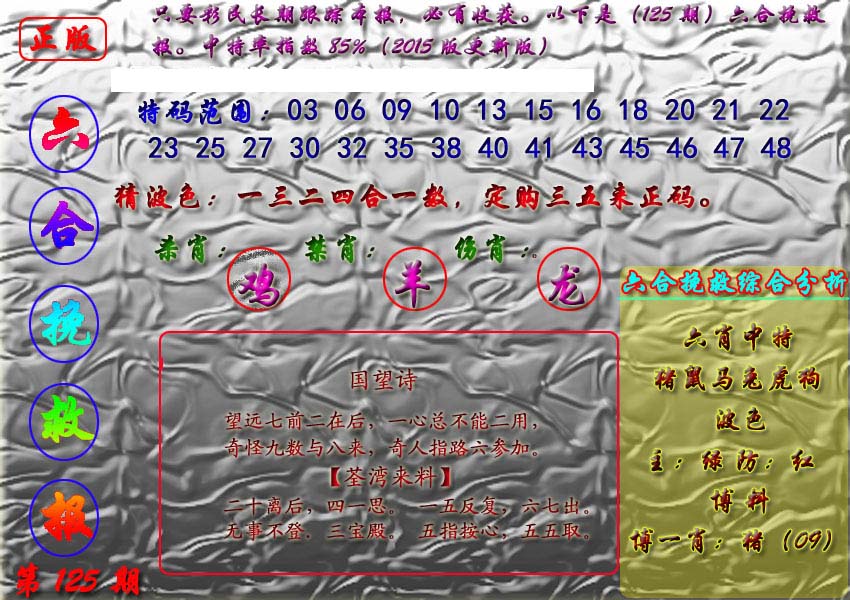 正版
只要彩民长期跟踪本报，必有收获。以下是（125期）六合挽救
报。中特率指数85%（2015版更新版）
六
合
挽
救
报
第125期
特码范围：03 06 09 10 13 15 16 18 20 21 22
23 25 27 30 32 35 38 40 41 43 45 46 47 48
猜波色：一三二四合一数，定购三五来正码。
杀肖：鸡 禁肖：羊 伤肖：龙
国望诗
望远七前二在后，一心总不能二用，
奇怪九数与八来，奇人指路六参加。
【荃湾来料】
二十离后，四一思。 一五反复，六七出。
无事不登．三宝殿。 五指按心，五五取。
六合挽救综合分析
六肖中特
猪鼠马兔虎狗
波色
主：绿防：红
博料
博一肖：猪（09）